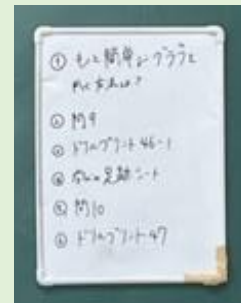 ① もっと簡単にグラフを
かく方法は?
② 問9
③ ドリルプリント46-1
④ 学びの足跡シート
⑤ 問10
⑥ ドリルプリント47